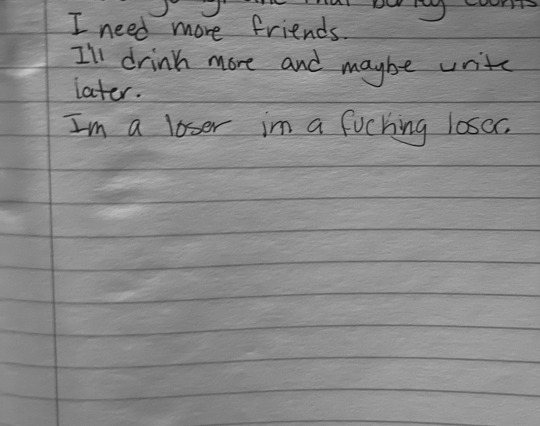 I need more friends.
I'll drink more and maybe write
later.
Im a loser im a fucking loser.